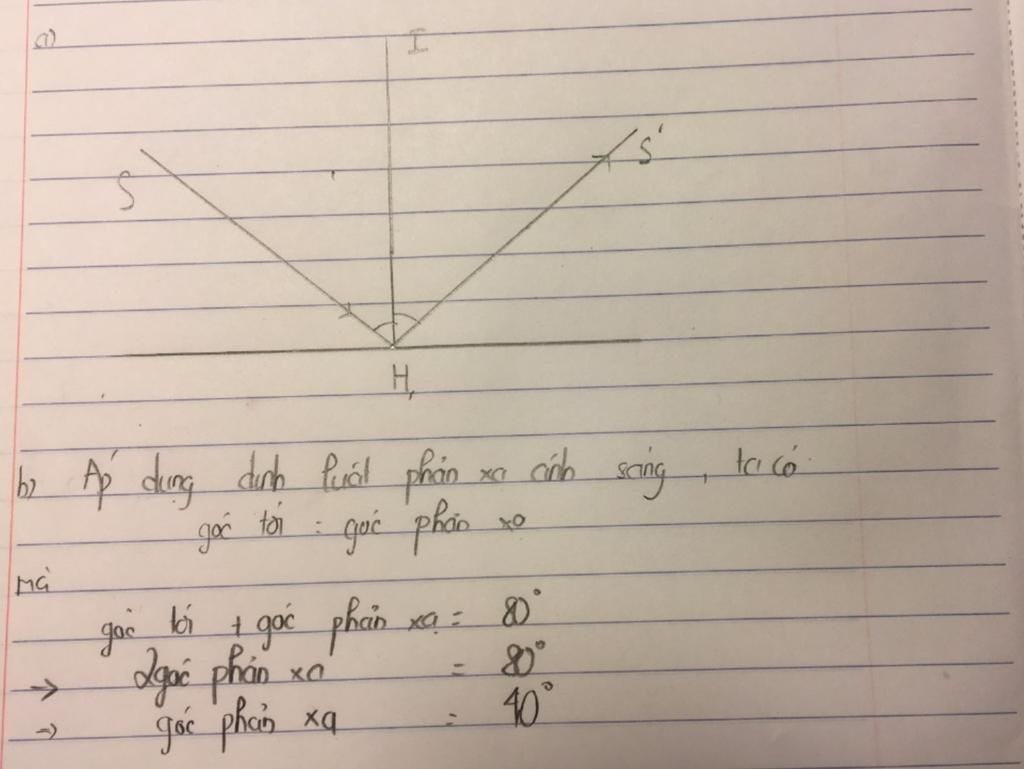 a)
I
S
S'
H
b) Áp dụng định luật phản xạ ánh sáng, ta có
góc tới = góc phản xạ
Mà
góc tới + góc phản xạ = 80°
→ 2góc phản xạ = 80°
→ góc phản xạ = 40°